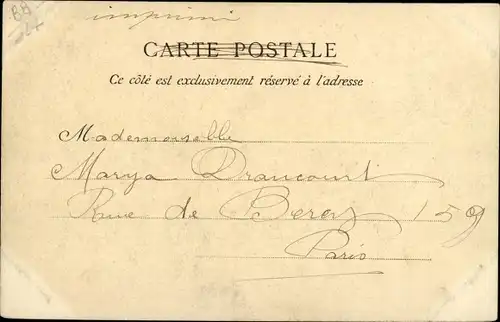 imprimé
CARTE POSTALE
Ce côté est exclusivement réservé à l'adresse
Mademoiselle
Marya Drancourt
Rue de Bercy 159
Paris